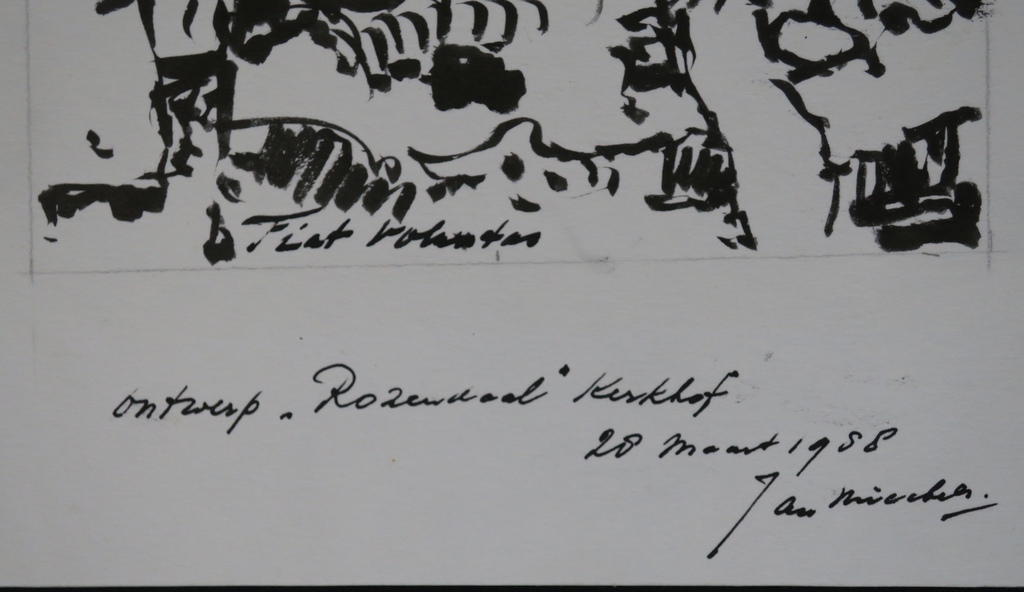 Fiat Voluntas
ontwerp „Rozendaal" Kerkhof
28 Maart 1988
Jan